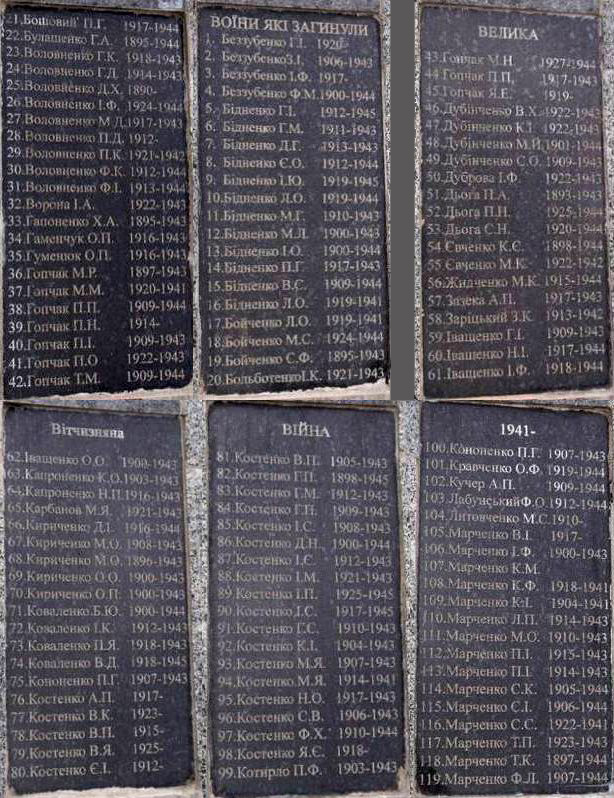 21.Бошовий П.Г. 1917-1944
22.Булашенко Г.А. 1895-1944
23.Воловненко Г.К. 1918-1943
24.Воловненко Г.Д. 1914-1943
25.Воловненко Д.Х. 1890-
26.Воловненко І.Ф. 1924-1944
27.Воловненко М.Д. 1917-1943
28.Воловненко П.Д. 1912-
29.Воловненко П.К. 1921-1942
30.Воловненко Ф.К. 1912-1944
31.Воловненко Ф.І. 1913-1944
32.Ворона І.А. 1922-1943
33.Гапоненко Х.А. 1895-1943
34.Гаменчук О.П. 1916-1943
35.Гуменюк О.П. 1916-1943
36.Гопчак М.Р. 1897-1943
37.Гопчак М.М. 1920-1941
38.Гопчак П.П. 1909-1944
39.Гопчак П.Н. 1914-
40.Гопчак П.І. 1909-1943
41.Гопчак П.О 1922-1943
42.Гопчак Т.М. 1909-1944
ВОЇНИ ЯКІ ЗАГИНУЛИ
1. Беззубенко Г.І. 1920-
2. Беззубенко З.І. 1906-1943
3. Беззубенко І.Ф. 1917-
4. Беззубенко Ф.М. 1900-1944
5. Бідненко Г.І. 1912-1945
6. Бідненко Г.М. 1911-1943
7. Бідненко Д.Г. 1913-1943
8. Бідненко Є.О. 1912-1944
9. Бідненко І.Ю. 1919-1945
10.Бідненко Л.О. 1919-1944
11.Бідненко М.Г. 1910-1943
12.Бідненко М.Л. 1900-1943
13.Бідненко І.О. 1900-1944
14.Бідненко П.Г. 1917-1943
15.Бідненко В.С. 1909-1944
16.Бідненко Л.О. 1919-1941
17.Бойченко Л.О. 1919-1941
18.Бойченко М.С. 1924-1944
19.Бойченко С.Ф. 1895-1943
20.Больботенко І.К. 1921-1943
ВЕЛИКА
43.Гопчак М.Н. 1927-1944
44 Гопчак П.П. 1917-1943
45.Гопчак Я.Е. 1919-
46.Дубінченко В.Х. 1922-1943
47.Дубінченко К.І. 1922-1943
48.Дубінченко М.Й. 1901-1944
49.Дубінченко С.О. 1909-1943
50.Дуброва І.Ф. 1922-1943
51.Дьога П.А. 1893-1943
52.Дьога П.Н. 1925-1944
53.Дьога С.Н. 1920-1944
54.Євченко К.Є. 1898-1944
55 Євченко М.К. 1922-1942
56.Жидченко М.К. 1915-1944
57.Зазека А.П. 1917-1943
58.Заріцький З.К. 1913-1942
59.Іващенко Г.І. 1909-1943
60.Іващенко Н.І. 1917-1944
61.Іващенко І.Ф. 1918-1944
Вітчизняна
62.Іващенко О.О. 1900-1943
63.Капроненко К.О. 1903-1943
64.Капроненко Н.П. 1916-1943
65.Карбанов М.Я. 1921-1943
66.Кириченко Д.І. 1916-1944
67.Кириченко М.О. 1908-1943
68.Кириченко М.О. 1896-1943
69.Кириченко О.О. 1900-1943
70.Кириченко О.П. 1900-1943
71.Коваленко Б.Ю. 1900-1944
72.Коваленко І.К. 1912-1943
73.Коваленко П.Я. 1918-1943
74.Коваленко В.Д. 1918-1945
75.Кононенко П.Г. 1907-1943
76.Костенко А.П. 1917-
77.Костенко В.К. 1923-
78.Костенко В.П. 1915-
79.Костенко В.Я. 1925-
80.Костенко Є.І. 1912-
ВІЙНА
81.Костенко В.П. 1905-1943
82.Костенко Г.П. 1898-1945
83.Костенко Г.М. 1912-1943
84.Костенко Г.Н. 1909-1943
85.Костенко І.С. 1908-1943
86.Костенко Д.Н. 1900-1944
87.Костенко І.Є. 1912-1943
88.Костенко І.М. 1921-1943
89.Костенко І.П. 1925-1945
90.Костенко І.С. 1917-1945
91.Костенко Г.С. 1910-1943
92.Костенко К.І. 1904-1943
93.Костенко М.Я. 1907-1943
94.Костенко М.Я. 1914-1941
95.Костенко Н.О. 1917-1943
96.Костенко С.В. 1906-1943
97.Костенко Ф.Х. 1910-1944
98.Костенко Я.Є. 1918-
99.Котирло П.Ф. 1903-1943
1941-
100.Кононенко П.Г. 1907-1943
101.Кравченко О.Ф. 1919-1944
102.Кучер А.П. 1909-1944
103.Лабунський Ф.О. 1912-1944
104.Литовченко М.С. 1910-
105.Марченко В.І. 1917-
106.Марченко І.Ф. 1900-1943
107.Марченко К.М.
108.Марченко К.Ф. 1918-1941
109.Марченко К.І. 1904-1941
110.Марченко Л.П. 1914-1943
111.Марченко М.О. 1910-1943
112.Марченко П.І. 1915-1943
113.Марченко П.І. 1914-1943
114.Марченко С.К. 1905-1944
115.Марченко Є.І. 1906-1944
116.Марченко С.С. 1922-1941
117.Марченко Т.П. 1923-1943
118.Марченко Т.К. 1897-1944
119.Марченко Ф.Л. 1907-1944